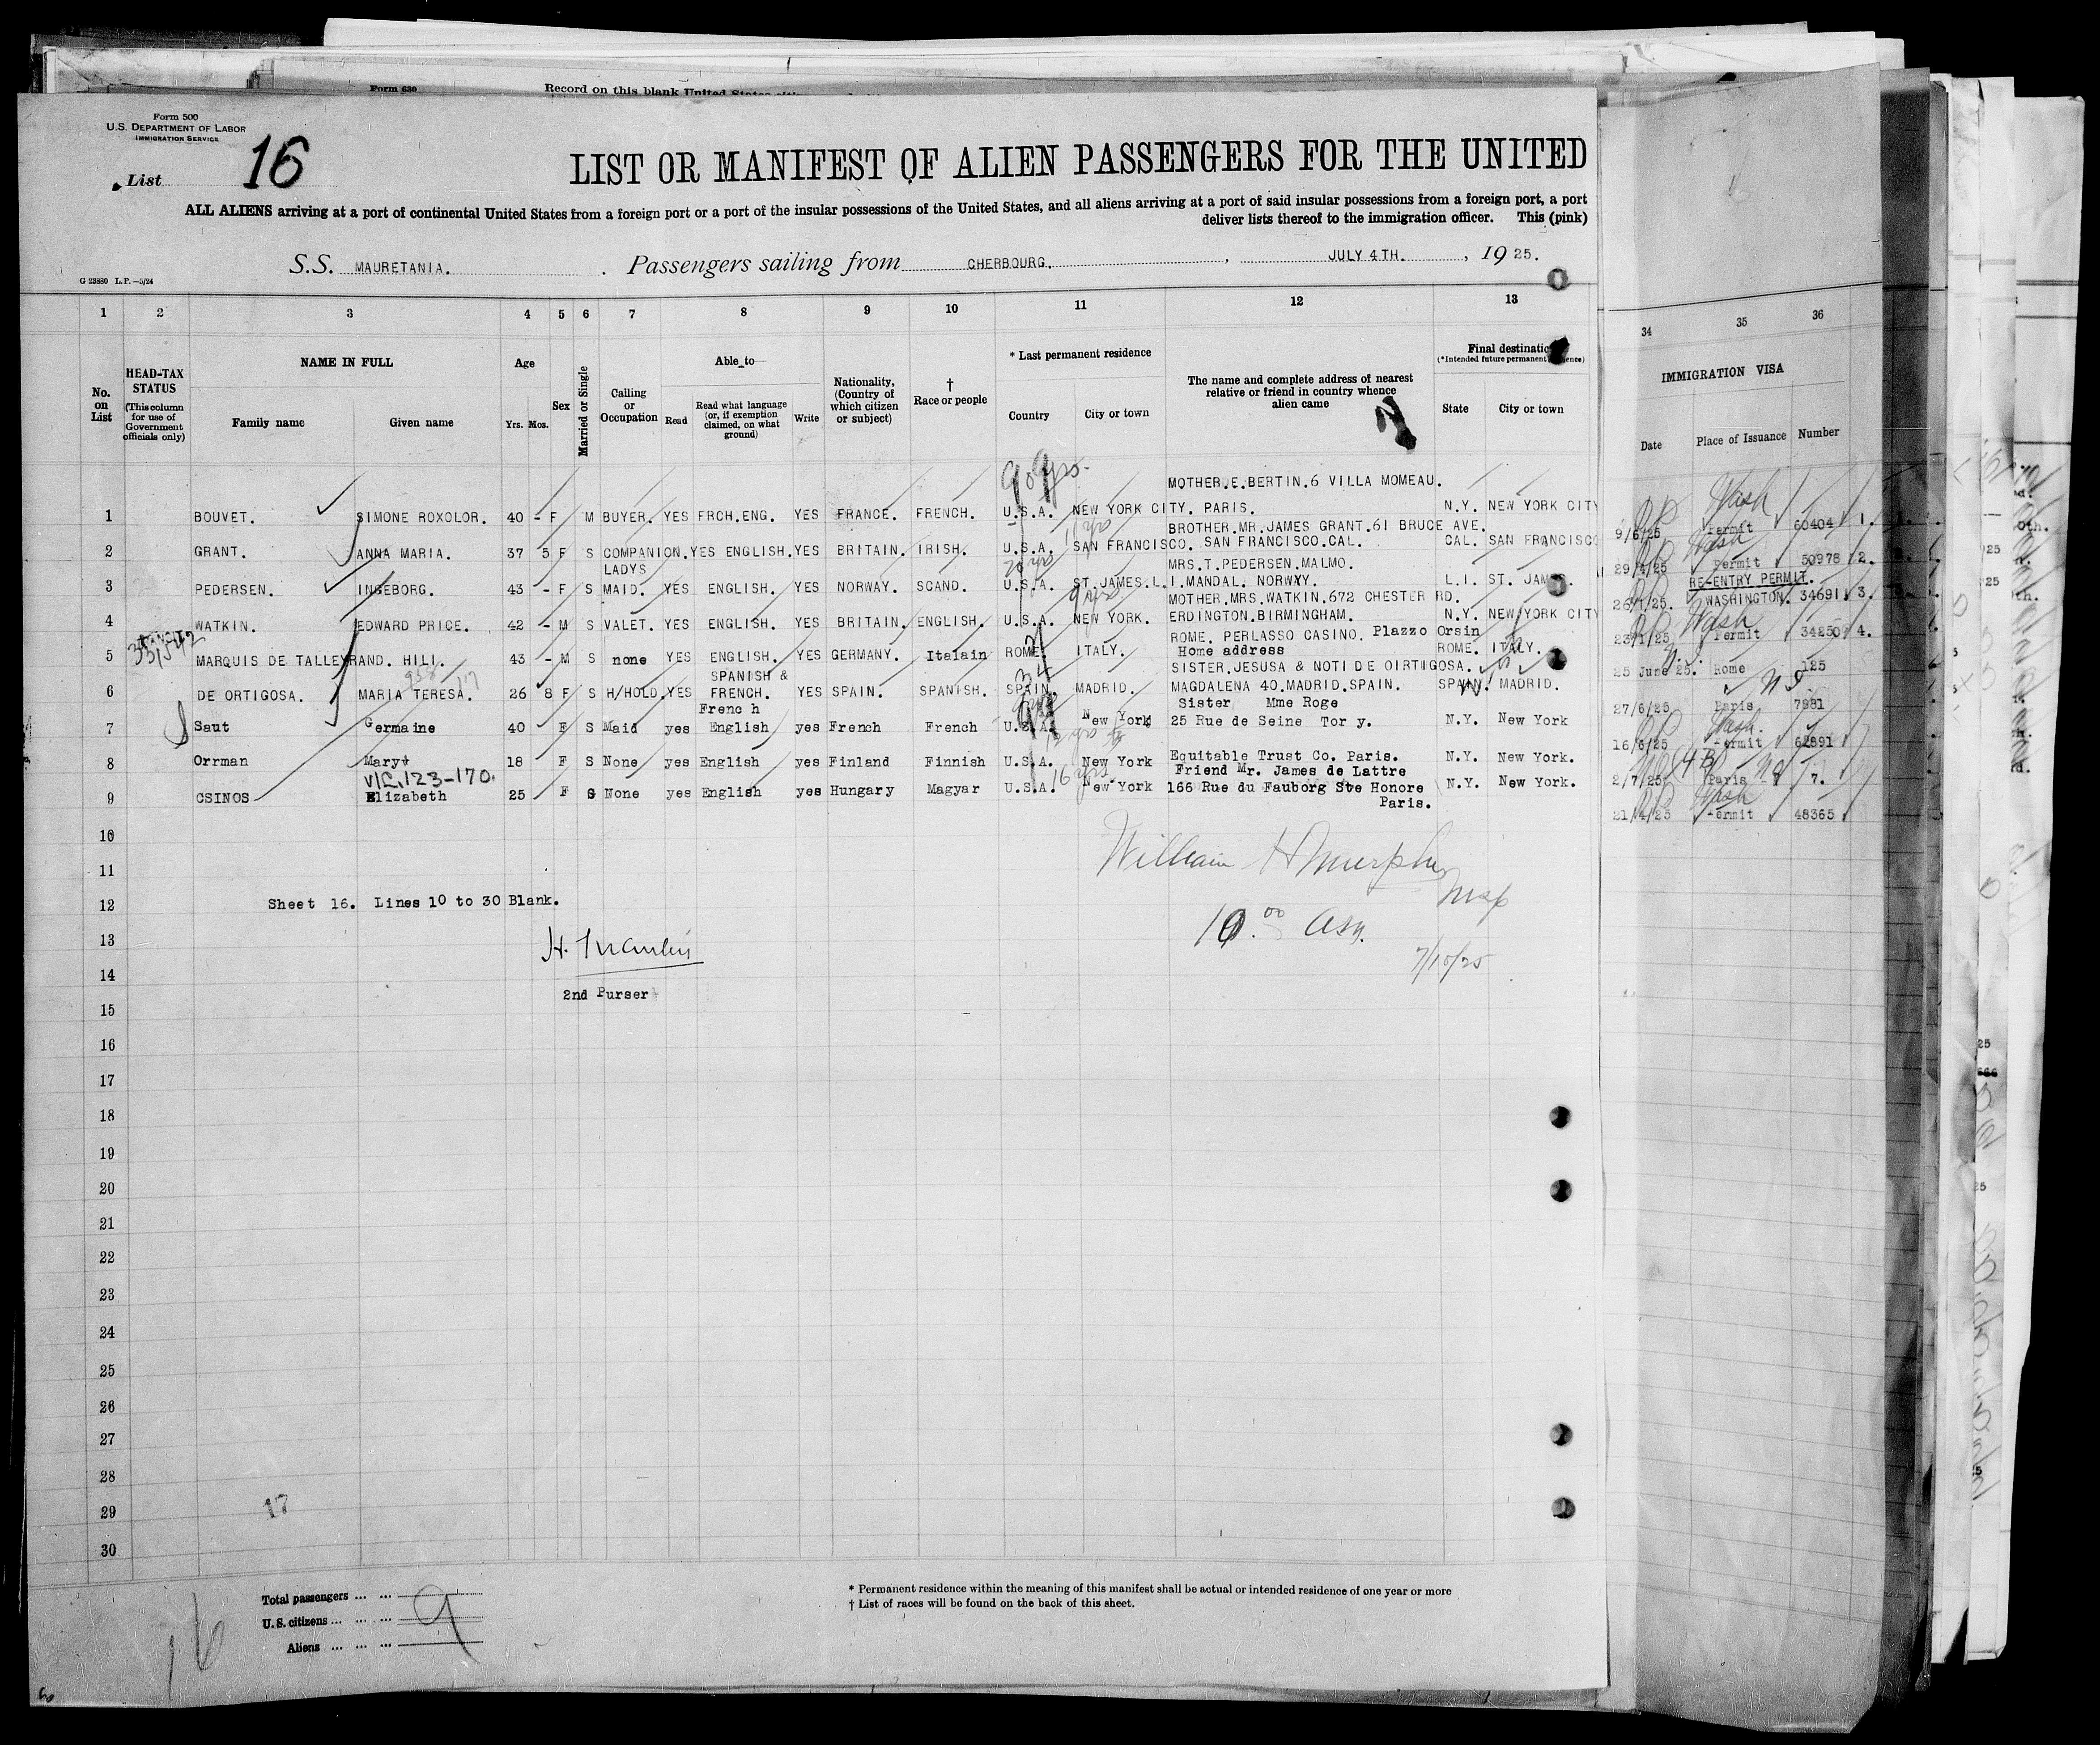 Form 630 Record on this blank United States
Form 500
U.S. DEPARTMENT OF LABOR
IMMIGRATION SERVICE
List 16
LIST OR MANIFEST OF ALIEN PASSENGERS FOR THE UNITED
ALL ALIENS arriving at a port of continental United States from a foreign port or a port of the insular possessions of the United States, and all aliens arriving at a port of said insular possessions from a foreign port, a port
deliver lists thereof to the immigration officer. This (pink)
S.S. MAURETANIA. Passengers sailing from CHERBOURG. , JULY 4TH. , 1925.
G 23880 L.P.—5/24
1 2 3 4 5 6 7 8 9 10 11 12 13 34 35 36
No. on List
HEAD-TAX STATUS
(This column for use of Government officials only)
NAME IN FULL
Family name Given name
Age
Yrs. Mos.
Sex
Married or Single
Calling or Occupation
Able to
Read
Read what language (or, if exemption claimed, on what ground)
Write
Nationality, (Country of which citizen or subject)
† Race or people
* Last permanent residence
Country City or town
The name and complete address of nearest relative or friend in country whence alien came
Final destination
(*Intended future permanent
State City or town
IMMIGRATION VISA
Date Place of Issuance Number
9 yrs.
MOTHER.E.BERTIN.6 VILLA MOMEAU.
1 BOUVET. SIMONE ROXOLOR. 40 - F M BUYER. YES FRCH.ENG. YES FRANCE. FRENCH. U.S.A. NEW YORK CITY. PARIS. N.Y. NEW YORK CITY 9/6/25 Wash Permit 60404 1.
BROTHER.MR.JAMES GRANT.61 BRUCE AVE.
2 GRANT. ANNA MARIA. 37 5 F S COMPANION. YES ENGLISH. YES BRITAIN. IRISH. U.S.A. SAN FRANCISCO. SAN FRANCISCO.CAL. CAL. SAN FRANCISCO 29/4/25 Wash Permit 50978 2.
LADYS MRS.T.PEDERSEN.MALMO. RE-ENTRY PERMIT.
3 PEDERSEN. INGEBORG. 43 - F S MAID. YES ENGLISH. YES NORWAY. SCAND. U.S.A. ST.JAMES.L.I. MANDAL. NORWAY. L.I. ST. JAMES. 26/1/25. WASHINGTON. 34691 3.
MOTHER.MRS.WATKIN.672 CHESTER RD.
4 WATKIN. EDWARD PRICE. 42 - M S VALET. YES ENGLISH. YES BRITAIN. ENGLISH. U.S.A. NEW YORK. ERDINGTON.BIRMINGHAM. N.Y. NEW YORK CITY 23/1/25 Wash Permit 34250 4.
ROME. PERLASSO CASINO. Plazzo Orsin
5 MARQUIS DE TALLEYRAND. HILI. 43 - M S none YES ENGLISH. YES GERMANY. Italain ROME. ITALY. Home address ROME. ITALY. 25 June 25. Rome 125
SPANISH & SISTER.JESUSA & NOTI DE OIRTIGOSA.
6 DE ORTIGOSA. MARIA TERESA. 26 8 F S H/HOLD. YES FRENCH. YES SPAIN. SPANISH. SPAIN. MADRID. MAGDALENA 40.MADRID.SPAIN. SPAIN. MADRID. 27/6/25 Paris 7981
French Sister Mme Roge
7 Saut Germaine 40 F S Maid yes English yes French French U.S.A. New York 25 Rue de Seine Tor y. N.Y. New York 16/6/25 Wash. Permit 62891
8 Orrman Mary 18 F S None yes English yes Finland Finnish U.S.A. New York Equitable Trust Co. Paris. N.Y. New York. 2/7/25 Paris 7.
V/C.123-170. 16 yrs. Friend Mr. James de Lattre
9 CSINOS Elizabeth 25 F S None yes English yes Hungary Magyar U.S.A. New York 166 Rue du Fauborg Ste Honore N.Y. New York. 21/4/25 Wash Permit 48365
Paris.
10
William H Murphy
11
12 Sheet 16. Lines 10 to 30 Blank.
13
7/10/25
14
2nd Purser
15
16
17
18
19
20
21
22
23
24
25
26
27
28
29 17
30
Total passengers ... ...
U.S. citizens ... ... ... 9
Aliens ... ... ...
16
* Permanent residence within the meaning of this manifest shall be actual or intended residence of one year or more
† List of races will be found on the back of this sheet.